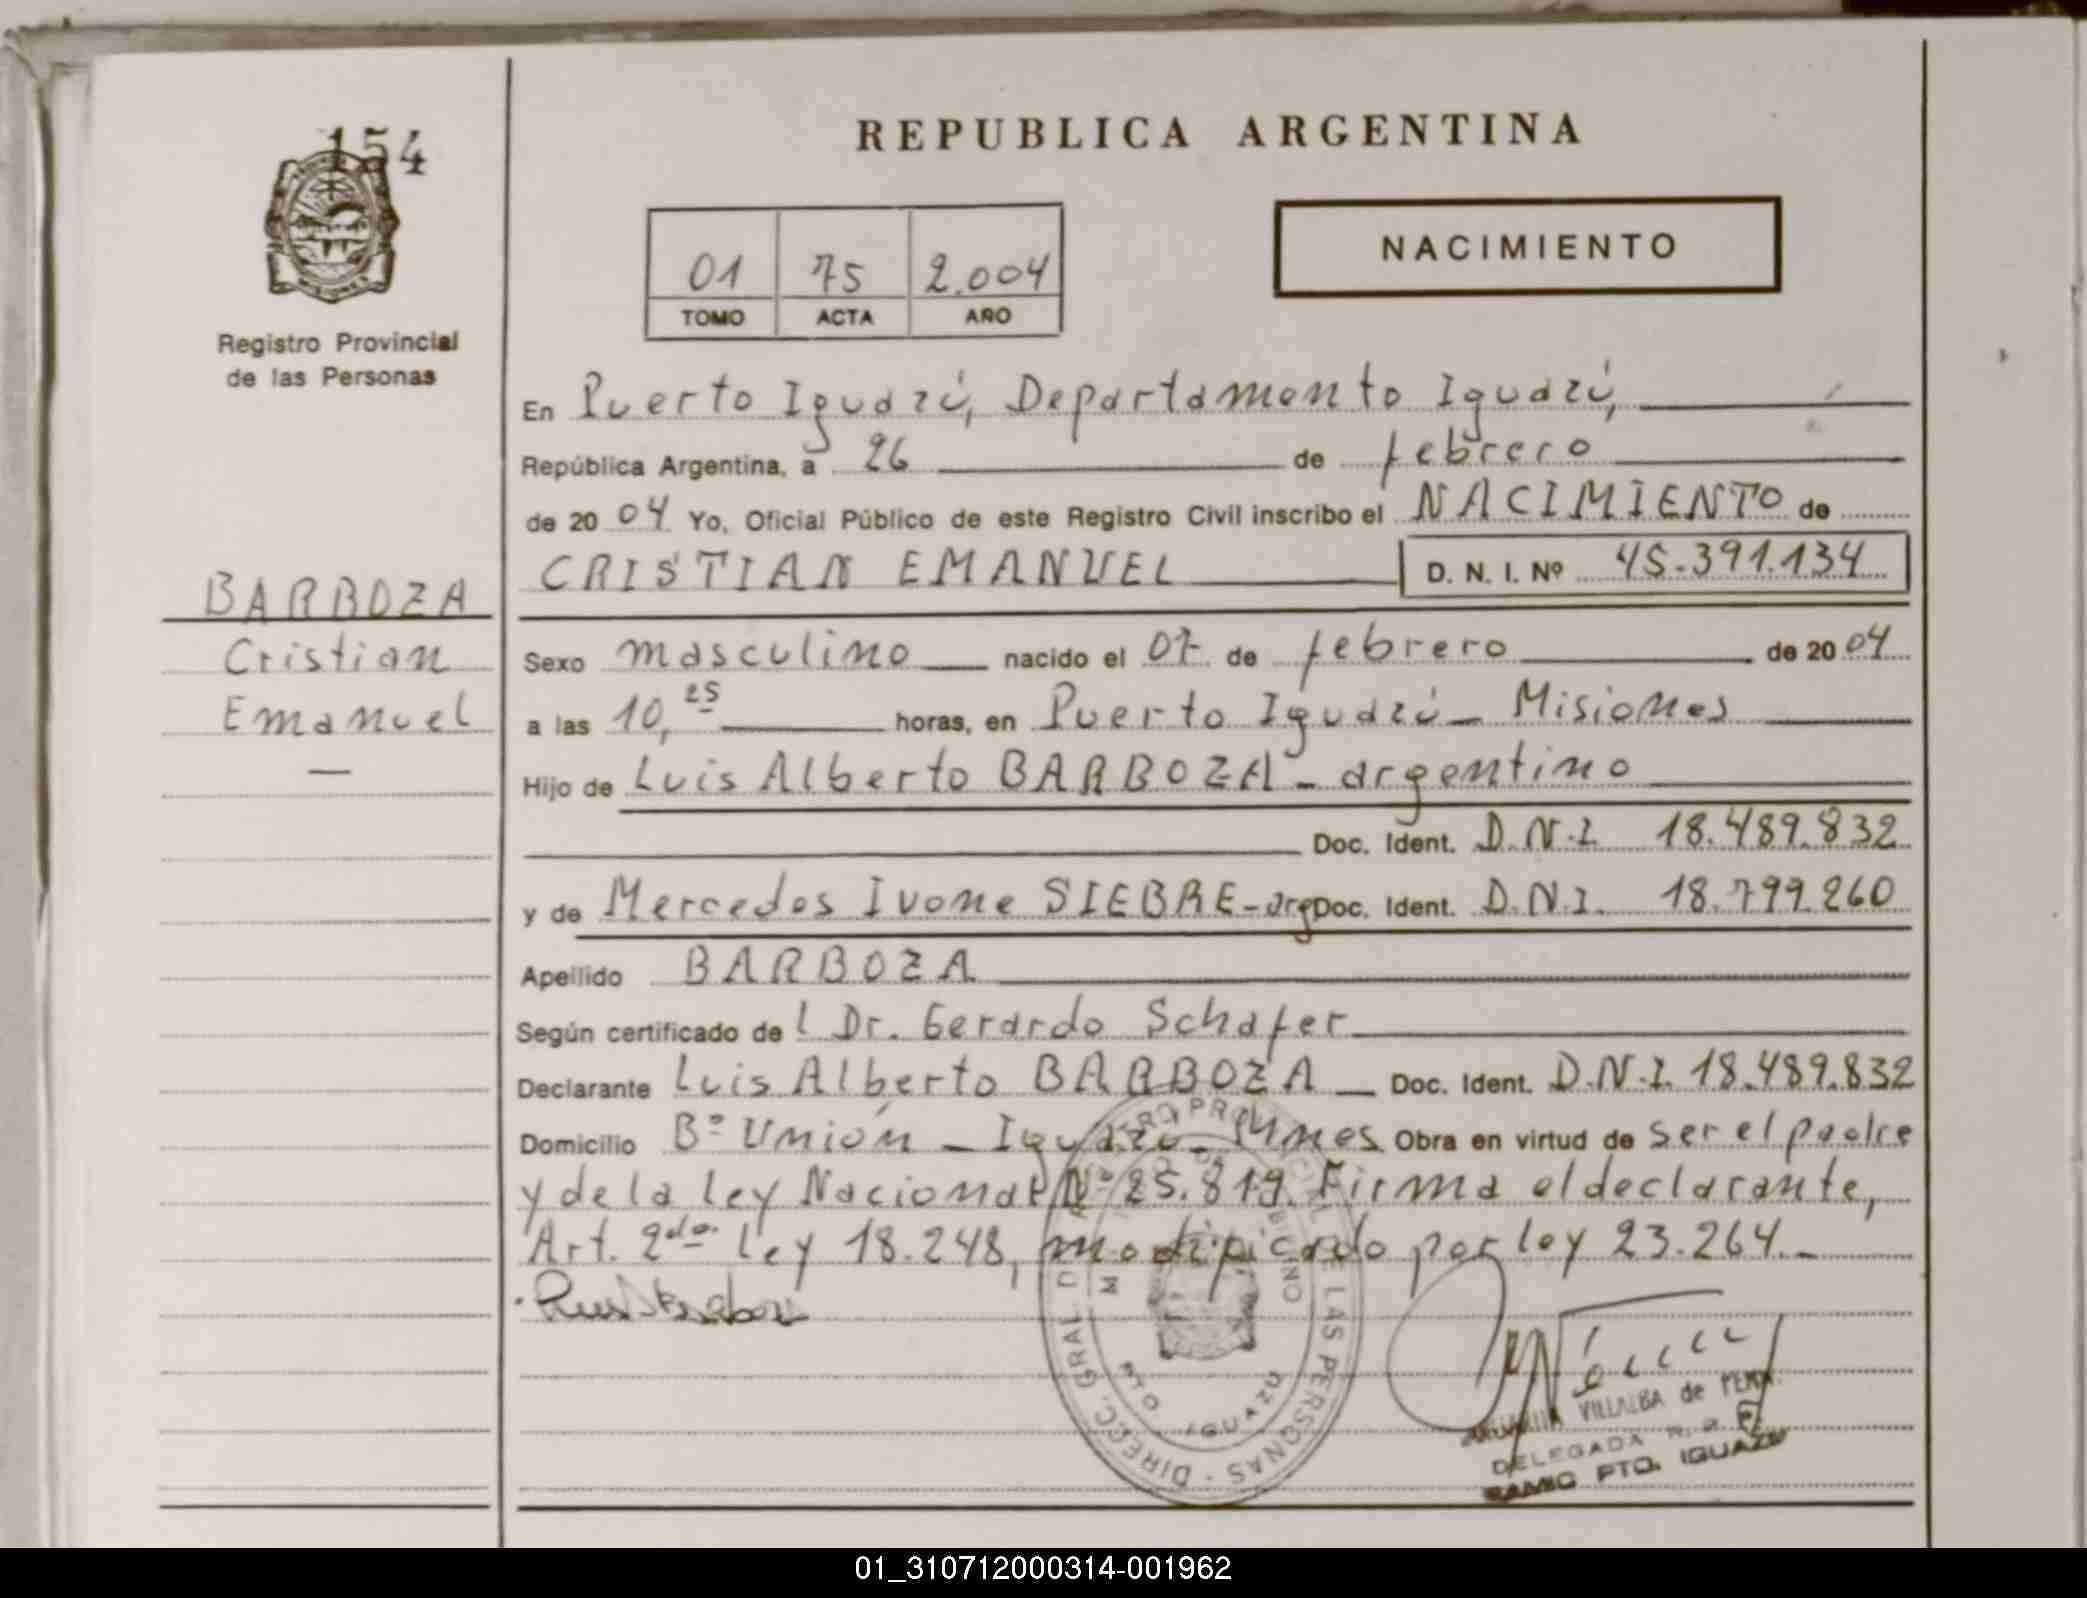 154
REPUBLICA ARGENTINA
NACIMIENTO
01 75 2.004
TOMO ACTA AÑO
Registro Provincial
de las Personas
En Puerto Iguazú, Departamento Iguazú,
República Argentina, a 26 de febrero
de 2004 Yo, Oficial Público de este Registro Civil inscribo el NACIMIENTO de
CRISTIAN EMANUEL D. N. I. Nº 45.391.134
BARBOZA
Cristian
Emanuel
Sexo masculino nacido el 07 de febrero de 2004
a las 10,25 horas, en Puerto Iguazú - Misiones
Hijo de Luis Alberto BARBOZA - argentino
Doc. Ident. D.N.I. 18.489.832
y de Mercedes Ivone SIEBRE - arg Doc. Ident. D.N.I. 18.799.260
Apellido BARBOZA
Según certificado de l Dr. Gerardo Schafer
Declarante Luis Alberto BARBOZA Doc. Ident. D.N.I. 18.489.832
Domicilio Bº Unión - Iguazú - Mnes Obra en virtud de ser el padre
y de la ley Nacional Nº 25.819. Firma el declarante,
Art. 2do ley 18.248, modificado por ley 23.264.-
DIRECC. GRAL. REGISTRO PROVINCIAL DE LAS PERSONAS
PTO. IGUAZU
VILLALBA de
DELEGADA
SAMIC PTO. IGUAZU
01_310712000314-001962